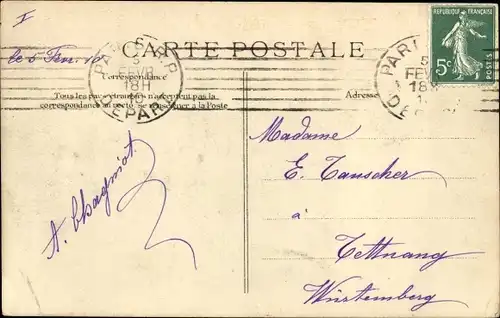 I
le 5 Fevr. 10
CARTE POSTALE
RÉPUBLIQUE FRANÇAISE
5c
POSTES
PARIS R.P
5
FEVR
18H
DEPART
PARI
5
FEVR
18
DE
Correspondance
Tous les pays étrangers n'acceptent pas la
correspondance au recto (se renseigner à la Poste)
Adresse
Madame
E. Tauscher
à
Tettnang
Würtemberg
A. Chagniat